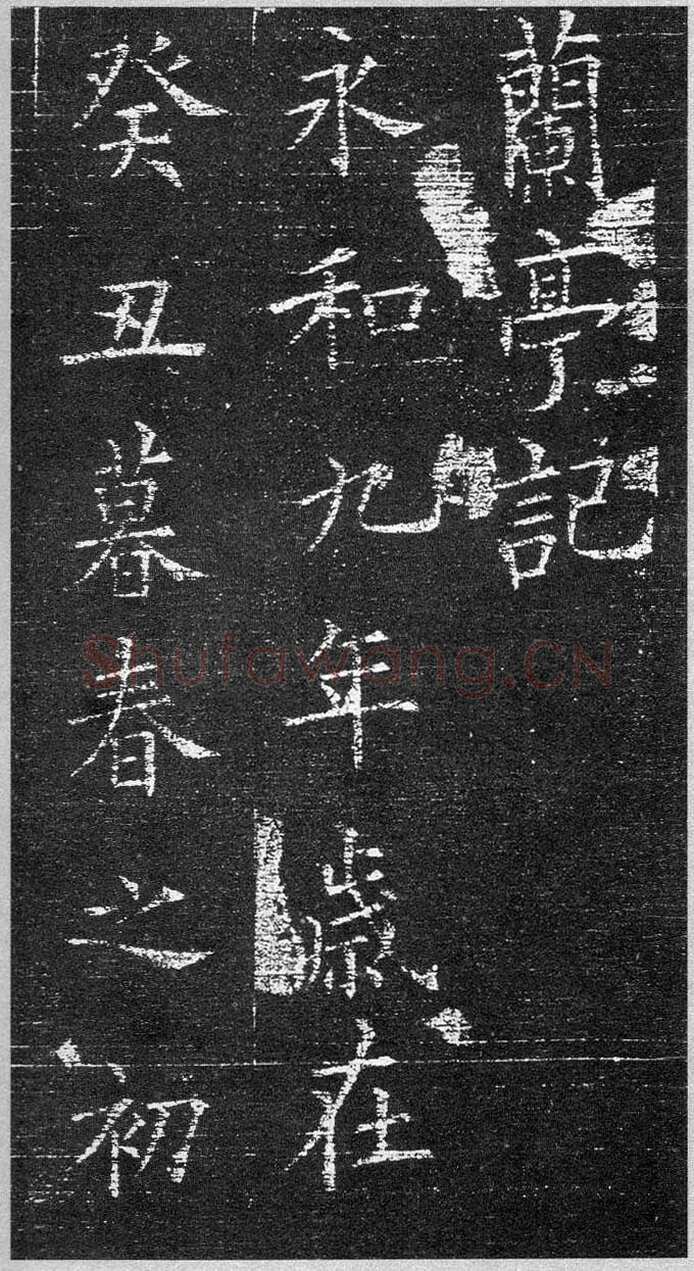 蘭亭記
永和九年歲在
癸丑暮春之初
Shufawang.CN